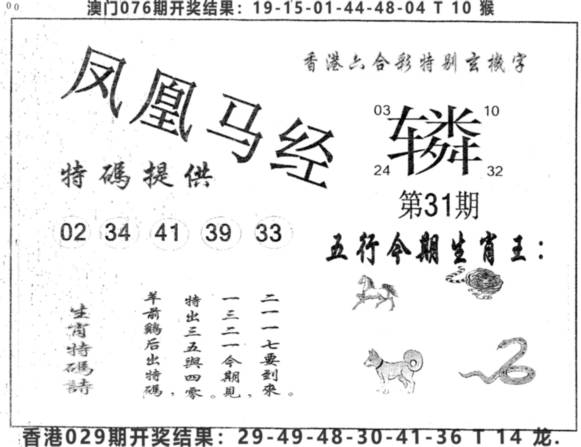 00
澳门076期开奖结果：19-15-01-44-48-04 T 10 猴
香港六合彩特别玄機字
凤凰马经
03 10
辚
24 32
特碼提供
第31期
02 34 41 39 33
五行今期生肖王：
生肖特碼詩
二一一七要到來。
一三二一今期見，
特出三五與四零。
羊前鷄后出特碼，
香港029期开奖结果：29-49-48-30-41-36 T 14 龙.